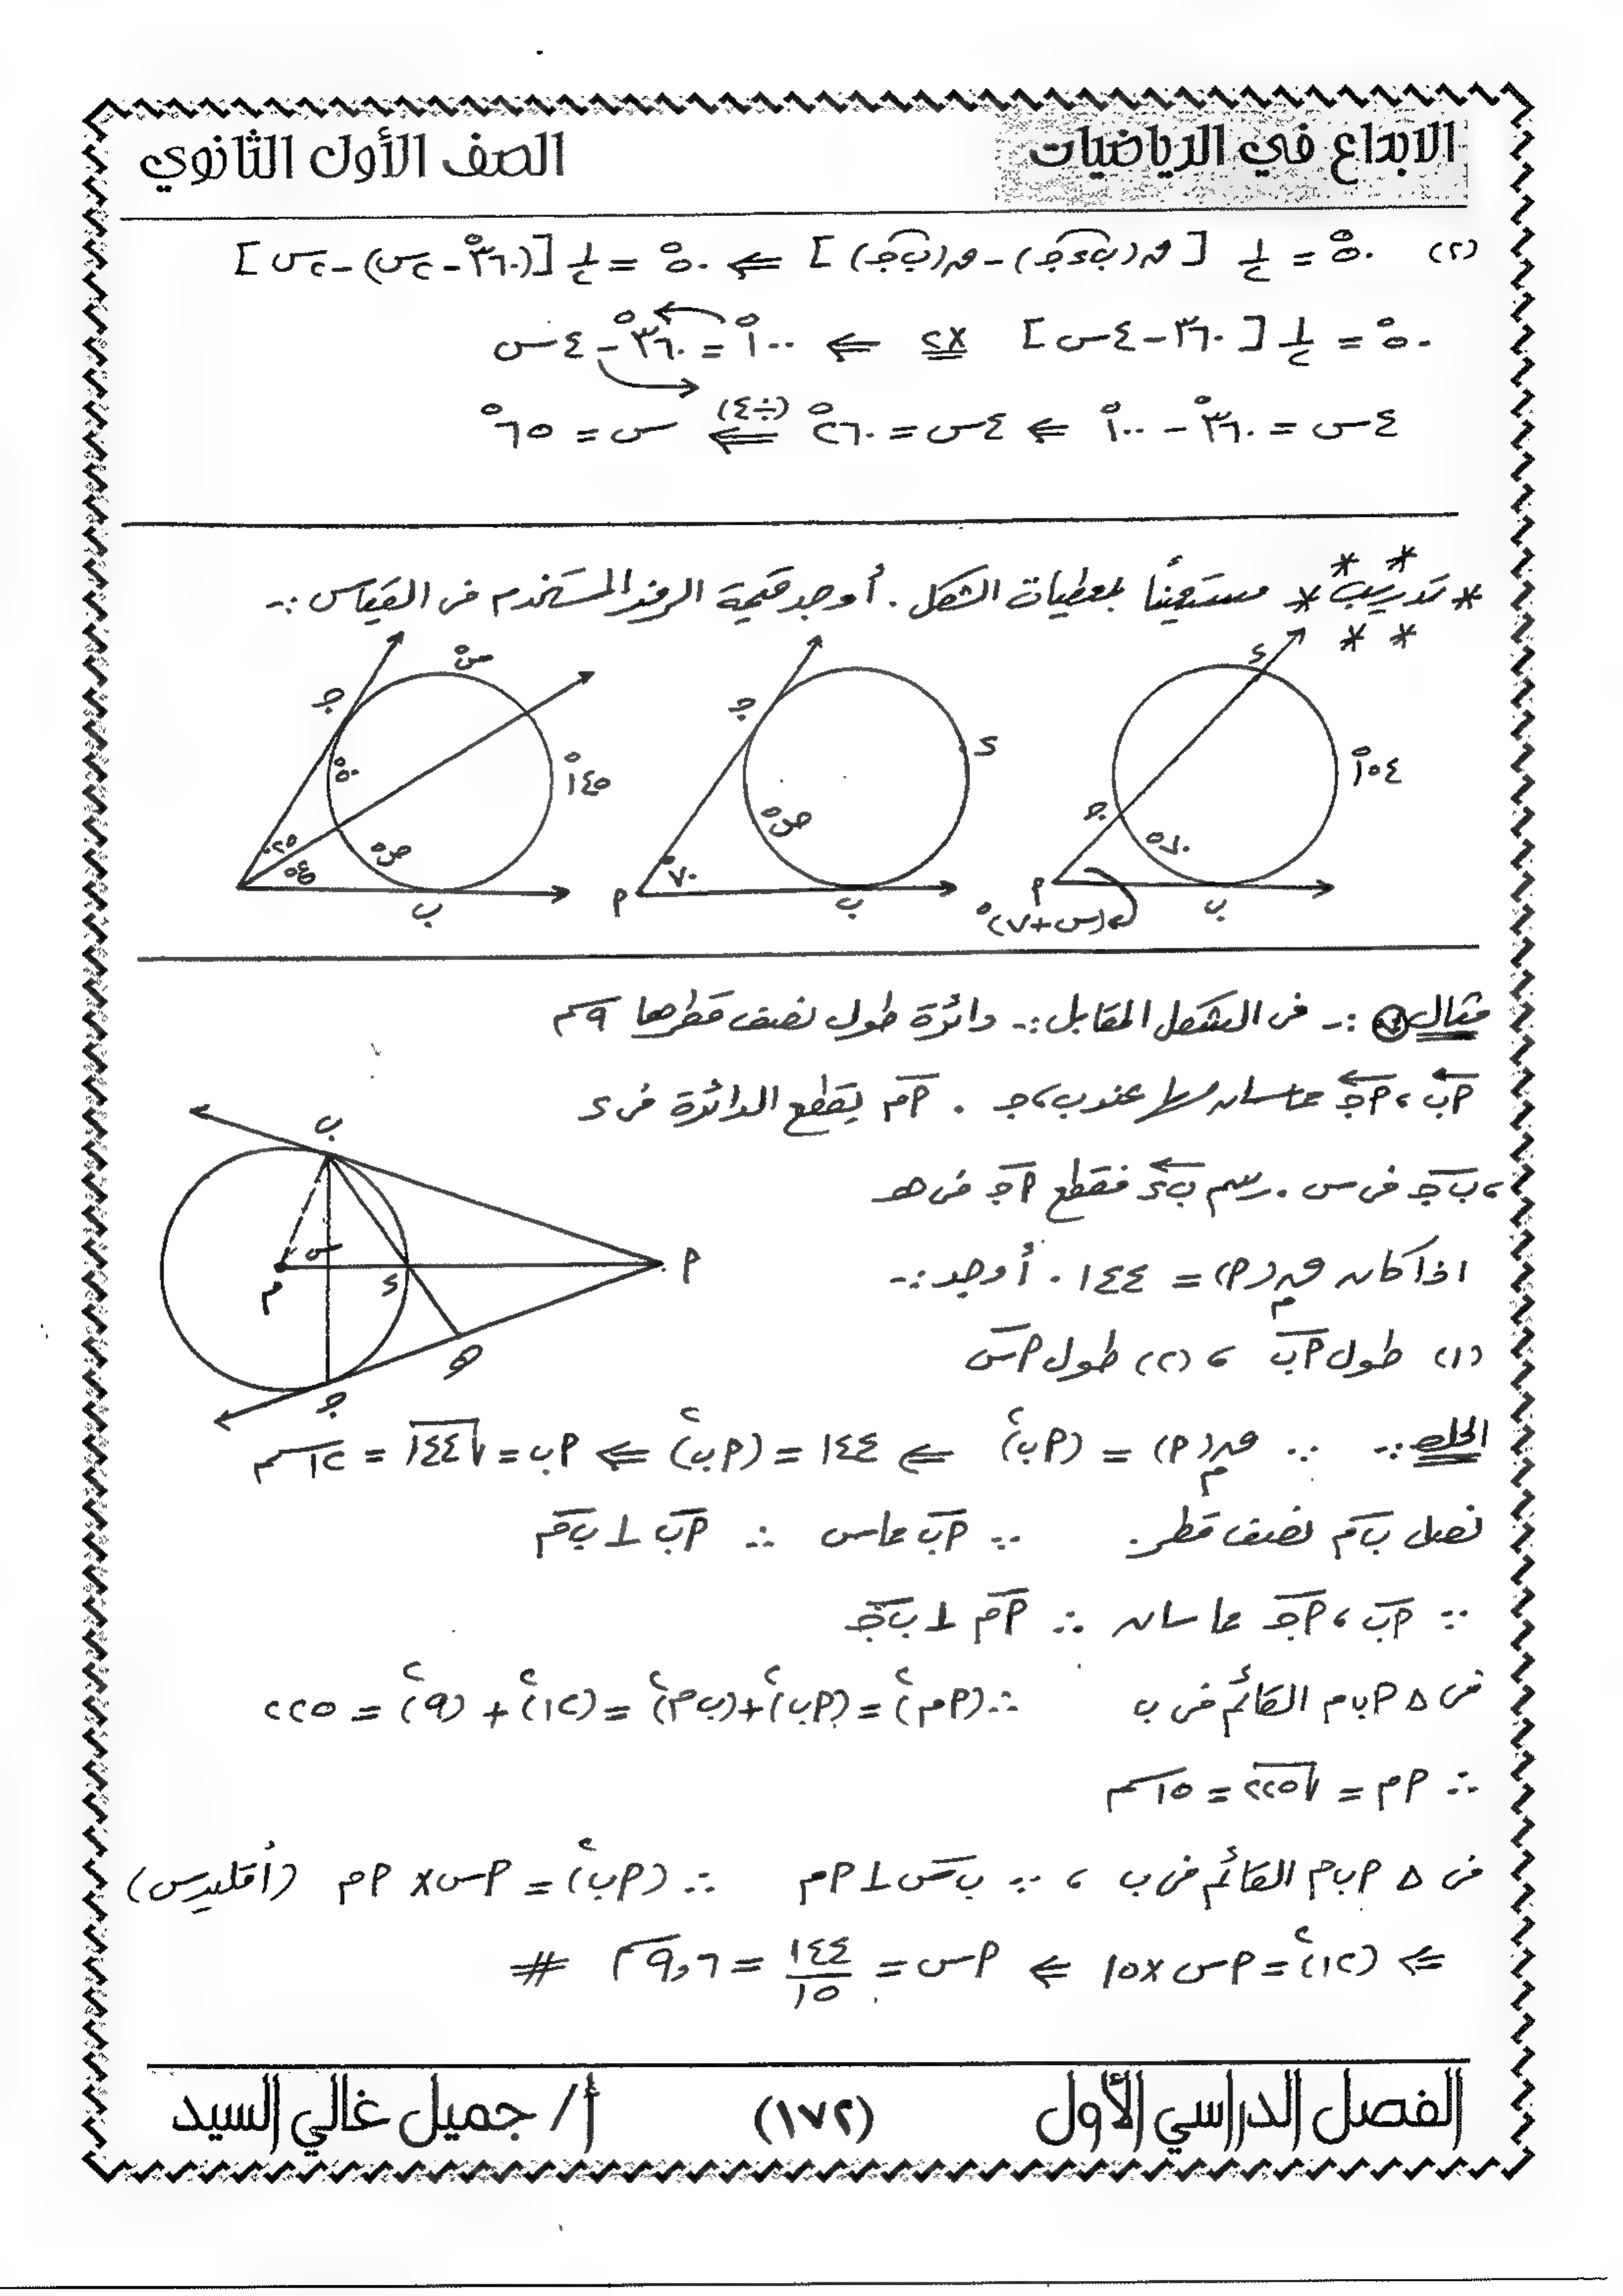 الابداع في الرياضيات
الصف الأول الثانوي
(٢) ٥٠° = ١/٢ [ق(ب د جـ) - ق(ب جـ)] ⇐ ٥٠° = ١/٢ [(٣٦٠° - ٢س) - ٢س]
٥٠° = ١/٢ [٣٦٠ - ٤س] ×٢ ⇐ ١٠٠° = ٣٦٠° - ٤س
٤س = ٣٦٠° - ١٠٠° ⇐ ٤س = ٢٦٠° (÷٤) ⇐ س = ٦٥°
* تدريب * مستعينًا بمعطيات الشكل . أوجد قيمة الرمز المستخدم في القياس :-
د
١٥٤°
جـ
٧٠°
م
ب
(س+٧)°
جـ
د
ص°
٧٠°
م
ب
س°
جـ
٥٠°
١٤٥°
ص°
ب
مثال :- في الشكل المقابل :- دائرة طول نصف قطرها ٩سم
أب ، أجـ مماسان لها عند ب ، جـ . أم يقطع الدائرة في د
، ب جـ في س . رسم ب د فقطع أجـ في هـ
اذا كان قم(أ) = ١٤٤ . أوجد :-
(١) طول أب ، (٢) طول أس
ب
س
م
د
أ
هـ
جـ
الحل :- ∵ قم(أ) = (أب)٢ ⇐ ١٤٤ = (أب)٢ ⇐ أب = √١٤٤ = ١٢سم
نصل ب م نصف قطر . ∵ أب مماس ∴ أب ⊥ ب م
∵ أب ، أجـ مماسان ∴ أم ⊥ ب جـ
في Δ أ ب م القائم في ب ∴ (أم)٢ = (أب)٢ + (ب م)٢ = (١٢)٢ + (٩)٢ = ٢٢٥
∴ أم = √٢٢٥ = ١٥سم
في Δ أ ب م القائم في ب ، ∵ ب س ⊥ أم ∴ (أب)٢ = أس × أم (أقليدس)
⇐ (١٢)٢ = أس × ١٥ ⇐ أس = ١٤٤/١٥ = ٩,٦سم #
الفصل الدراسي الأول
(١٧٢)
أ/ جميل غالي السيد